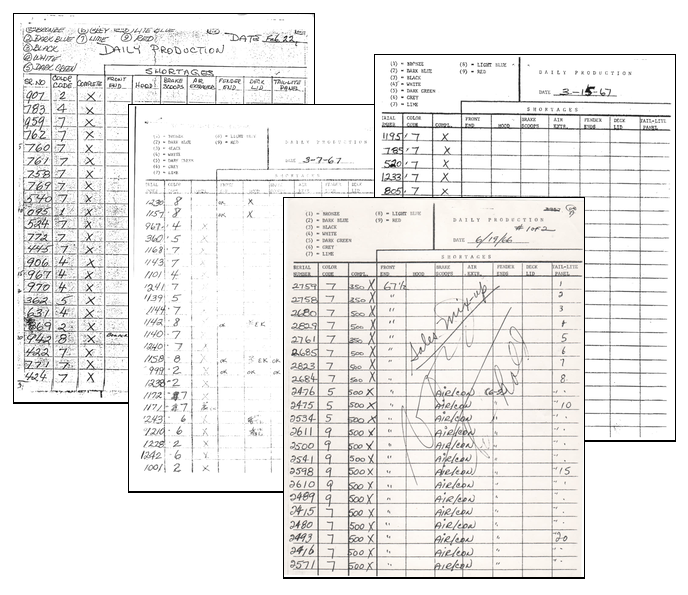 ① BRONZE ⑥ GREY ⑧ LITE BLUE
② DARK BLUE ⑦ LIME ⑨ RED
③ BLACK
④ WHITE
⑤ DARK GREEN
DATE Feb 22
DAILY PRODUCTION
SHORTAGES
SR. NO. COLOR CODE COMPLETE FRONT END HOOD BRAKE SCOOPS AIR EXTRACTOR FENDER END DECK LID TAIL-LITE PANEL
907 2 X
783 4 X
959 7 X
762 7 X
760 7 X
761 7 X
758 7 X
769 7 X
540 7 X
1095 1 X
524 7 X
772 7 X
445 7 X
906 4 X
967 4 X
970 4 X
362 5 X
631 4 X
869 2 X
942 8 X
422 7 X
771 7 X
424 7 X
(1) = BRONZE (8) = LIGHT BLUE
(2) = DARK BLUE (9) = RED
(3) = BLACK
(4) = WHITE
(5) = DARK GREEN
(6) = GREY
(7) = LIME
DAILY PRODUCTION
DATE 3-7-67
SHORTAGES
1230 8 OK X
1157 8 OK X
967 4
360 5
1168 7
1143 7
1101 4
1241 7
1139 5
1144 7
1142 8 OK
1140 7
1240 7
1158 8 OK
999 2 OK OK OK
1238 2
1172 7
1171 7
1243 6
1210 6
1228 2
1242 6
1001 2
(1) = BRONZE (8) = LIGHT BLUE
(2) = DARK BLUE (9) = RED
(3) = BLACK
(4) = WHITE
(5) = DARK GREEN
(6) = GREY
(7) = LIME
DAILY PRODUCTION
DATE 3-15-67
SHORTAGES
SERIAL NUMBER COLOR CODE COMPL. FRONT END HOOD BRAKE SCOOPS AIR EXTR. FENDER ENDS DECK LID TAIL-LITE PANEL
1195 7 X
785 7 X
520 7 X
1233 7 X
805 7 X
(1) = BRONZE (8) = LIGHT BLUE
(2) = DARK BLUE (9) = RED
(3) = BLACK
(4) = WHITE
(5) = DARK GREEN
(6) = GREY
(7) = LIME
DAILY PRODUCTION
# 1 of 2
DATE 6/19/66
SHORTAGES
SERIAL NUMBER COLOR CODE COMPL. FRONT END HOOD BRAKE SCOOPS AIR EXTR. FENDER ENDS DECK LID TAIL-LITE PANEL
2759 7 350 X 67½ 1
2758 7 350 X " 2
2680 7 500 X " 3
2829 7 500 X " 4
2761 7 350 X " 5
2685 7 500 X " 6
2823 7 500 X " 7
2684 7 500 X " 8
Sales mix-up
2476 5 500 X " Air/con
2475 5 500 X " Air/con " 10
2534 5 500 X " Air/con "
2611 9 500 X " Air/con "
2500 9 500 X " Air/con "
2541 9 500 X " Air/con "
2598 9 500 X " Air/con " 15
2610 9 500 X " Air/con "
2489 9 500 X " Air/con "
2415 7 500 X " Air/con "
2480 7 500 X " Air/con "
2493 7 500 X " Air/con " 20
2416 7 500 X " Air/con "
2571 7 500 X " Air/con "